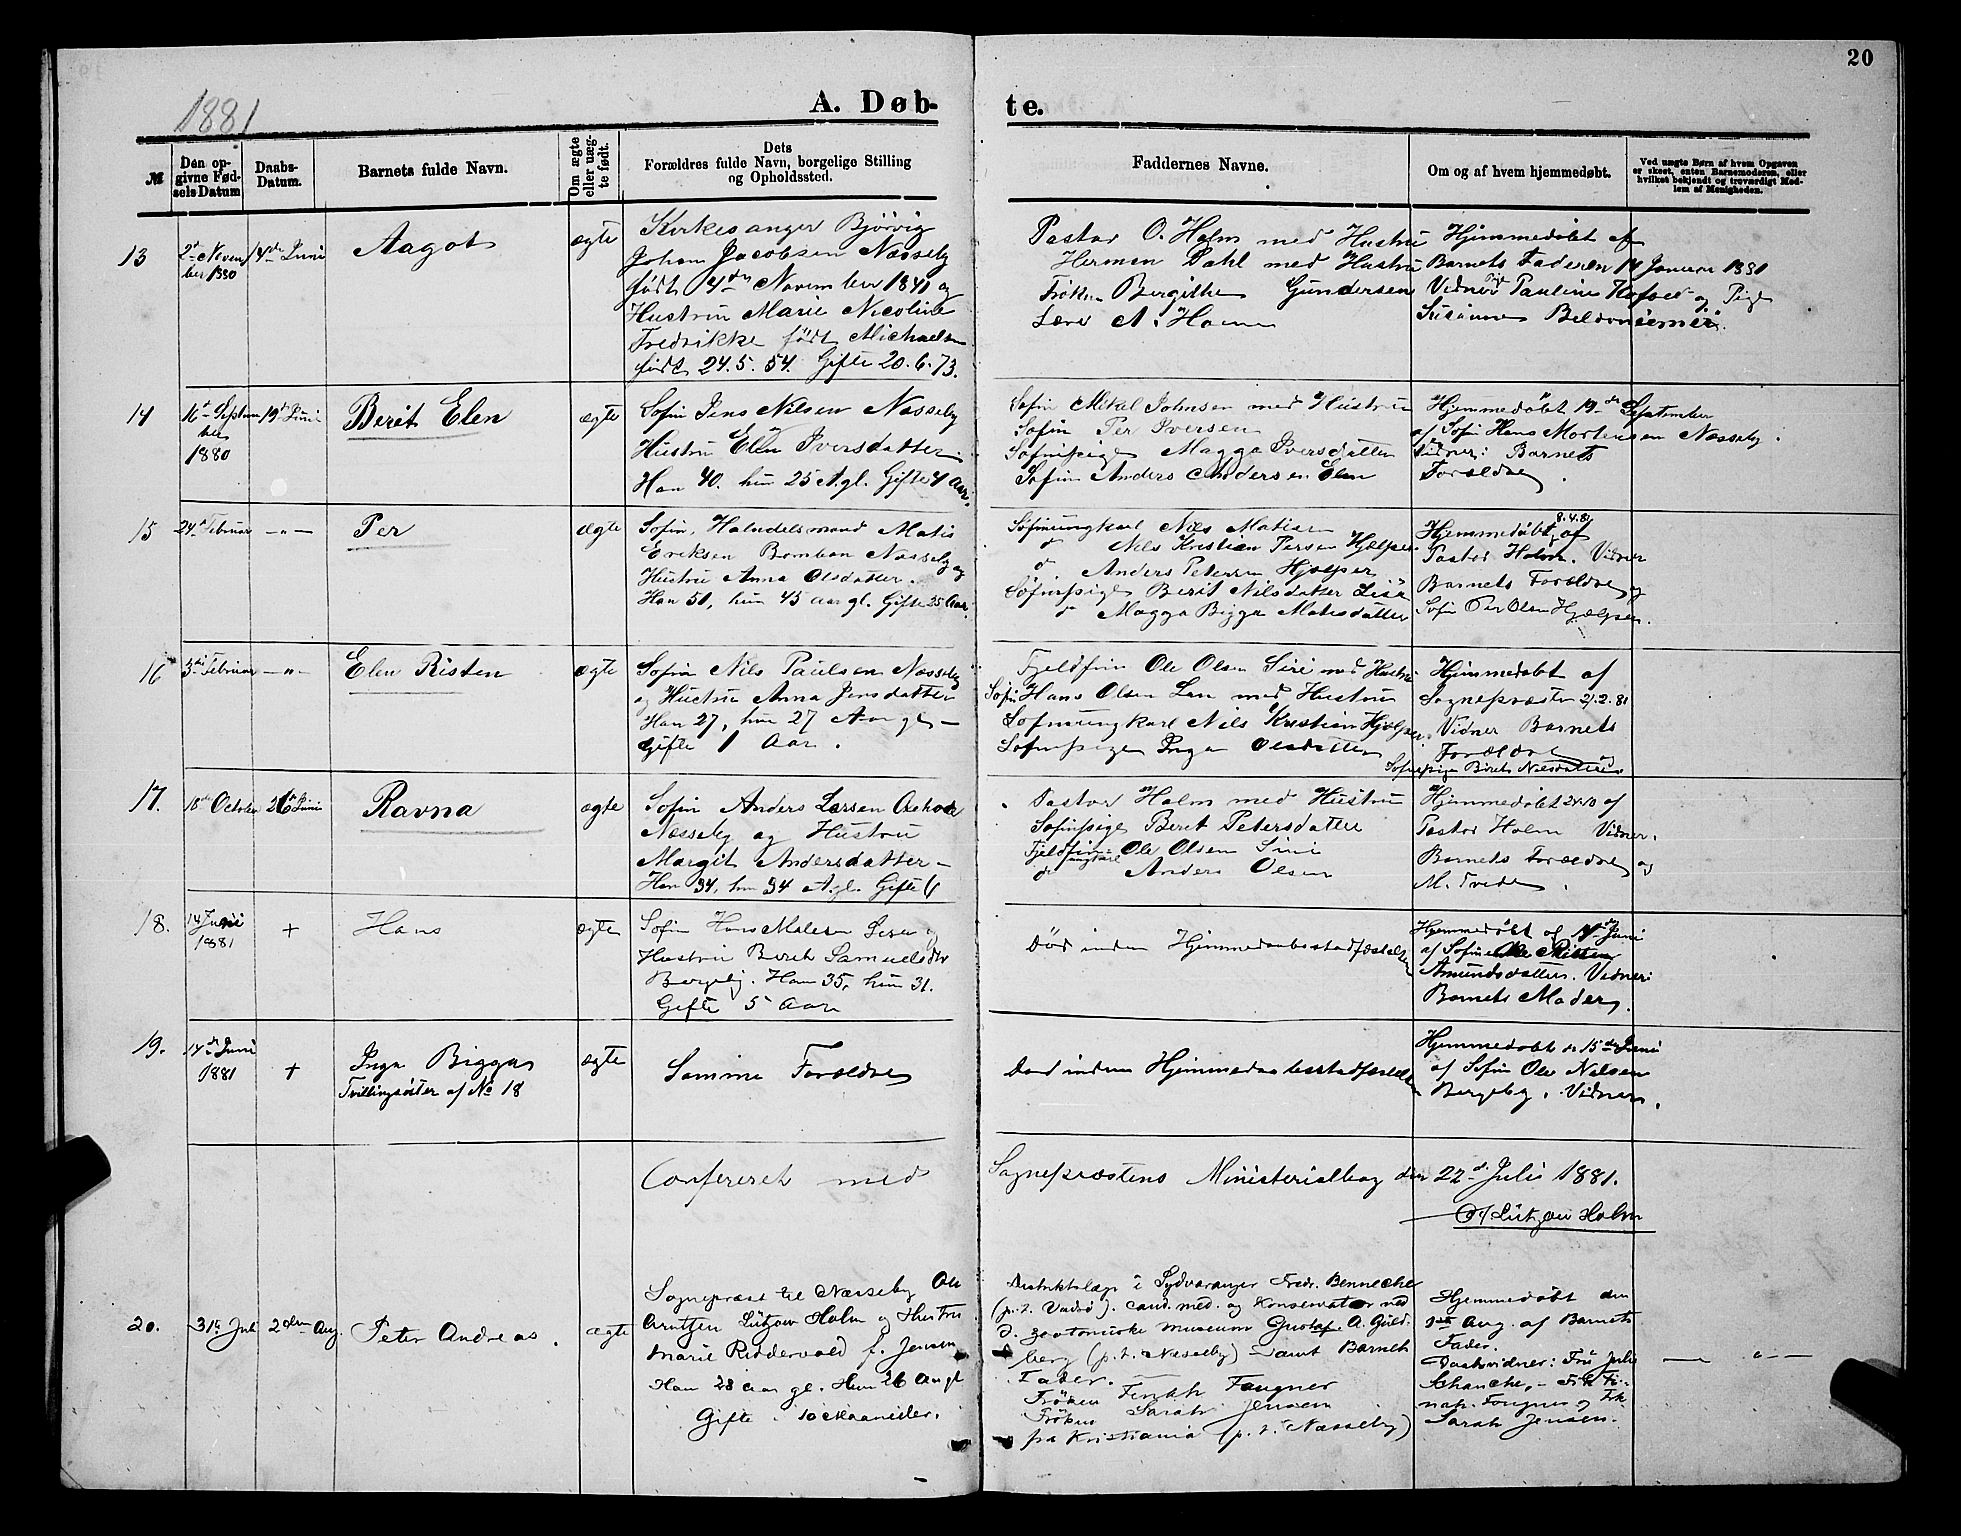 20
1881
A. Døb-
te.
№
Den op-
givne Fød-
sels Datum
Daabs-
Datum.
Barnets fulde Navn.
Om ægte
eller uæg-
te født.
Dets
Forældres fulde Navn, borgelige Stilling
og Opholdssted.
Faddernes Navne.
Om og af hvem hjemmedøbt.
Ved uægte Børn af hvem Opgaven
er skeet, enten Barnemoderen, eller
hvilket bekjendt og troværdigt Med-
lem af Menigheden.
13
2d Novem
ber 1880
Juni
Aagot
ægte
Kirkesanger Bjørvig
Johan Jacobsen Næsseby
født 4de November 1841 og
Hustru Marie Nicoline
Fredrikke født Michaelsen
født 24.5.54. Gifte 20.6.73.
Pastor O. Holm med Hustru
Herman Dahl med Hustru
Frøken Bergithe Gundersen
Hjemmedøbt af
Barnets Faderen 14 Januar 1881
Vidner Pauline og Pige
Susanne
14
16de Septem
ber
1880
19de Juni
Berit Elen
ægte
Sofin Jens Nilsen Næsseby
Hustru Elen Iversdatter
Han 40. hun 25 A. gl. Gifte 4 Aar.
Sofin Mikal Johnsen med Hustru
Sofin Per Iversen
Sofinpige Magga Iversdatter
Sofin Anders Andersen Elen
Hjemmedøbt 19de September
af Sofin Hans Mortensen Næsseby.
Vidner: Barnets
Forældre.
15
24de Februar
-"-
Per
ægte
Sofin, Handelsmand Matis
Eriksen Bomban Næsseby og
Hustru Anna Olsdatter.
Han 51, hun 45 Aar gl. Gifte 25 Aar.
Søfinungkarl Nils Matisen
do Nils Kristian Persen Hjelper
do Anders Petersen Hjelper
Søfinpige Berit Nilsdatter
do Magga Bigga Matisdatter
8.4.81
Hjemmedøbt af
Pastor Holm. Vidner
Barnets Forældre og
Sofin Per Olsen Hjelper.
16
3die Februar
-"-
Elen Risten
ægte
Sofin Nils Paulsen Næsseby
og Hustru Anna Jensdatter
Han 27, hun 27 Aar gl. -
Gifte 1 Aar.
Fjeldfin Ole Olsen Siri med Hustru
Sofin Hans Olsen med Hustru
Sofinungkarl Nils Kristian Hjelper
Sofinpige Inga Olsdatter
Hjemmedøbt af
Sognepresten 21.2.81
Vidner Barnets
Forældre og
Sofinpige Berit Nilsdatter
17.
18de October
26de Juni
Ravna
ægte
Sofin Anders Larsen
Næsseby og Hustru
Margit Andersdatter -
Han 34, hun 34 A. gl. Gifte
Pastor Holm med Hustru
Sofinpige Berit Petersdatter
Fjeldfin Ole Olsen Siri
do ungkarl Anders Olsen
Hjemmedøbt 24.10 af
Pastor Holm Vidner.
Barnets Forældre og
M. Tvede.
18.
14 Juni
1881
+
Hans
ægte
Sofin Hans og
Hustru Berit Samuelsdtr
Bergeby. Han 35, hun 31.
Gifte 5 Aar
Død inden Hjemmedaabsstadfæstelsen
Hjemmedøbt af 14de Juni
af Sofin Risten
Amundsdatter. Vidner:
Barnets Moder.
19.
14de Juni
1881
+
Inga Bigga
Tvillingsøster af No 18
ægte
Samme Forældre
Død inden Hjemmedaabsstadfæstelsen
Hjemmedøbt 15de Juni
af Sofin Ole Nilsen
Bergeby. Vidner.
Confereret med
Sogneprestens Ministerialbog den 22d Juli 1881.
O. A. Lützow Holm
20.
31te Juli
2den Aug.
Peter Andreas.
ægte
Sogneprest til Næsseby Ole
Arntzen Lützow Holm og Hustru
Marie Riddervold f. Jensen
Han 28 Aar gl. Hun 26 Aar gl
Gifte 10 Maaneder.
Distriktslæge i Sydvaranger Fredr. Bennecke
(p.t. Vadsø). cand. med. og Konservator ved
d. zootomiske museum Gustaf. A. Guld-
berg (p.t. Næsseby) samt Barnets
Fader. -
Frøken Fougner
Frøken Sarah Jensen
fra Kristiania (p.t. Næsseby)
Hjemmedøbt den
1ste Aug. af Barnets
Fader.
Daabsvidner: Fru Julie
Schanche, - Frk
Fougner og Frk
Sarah Jensen.
— " —